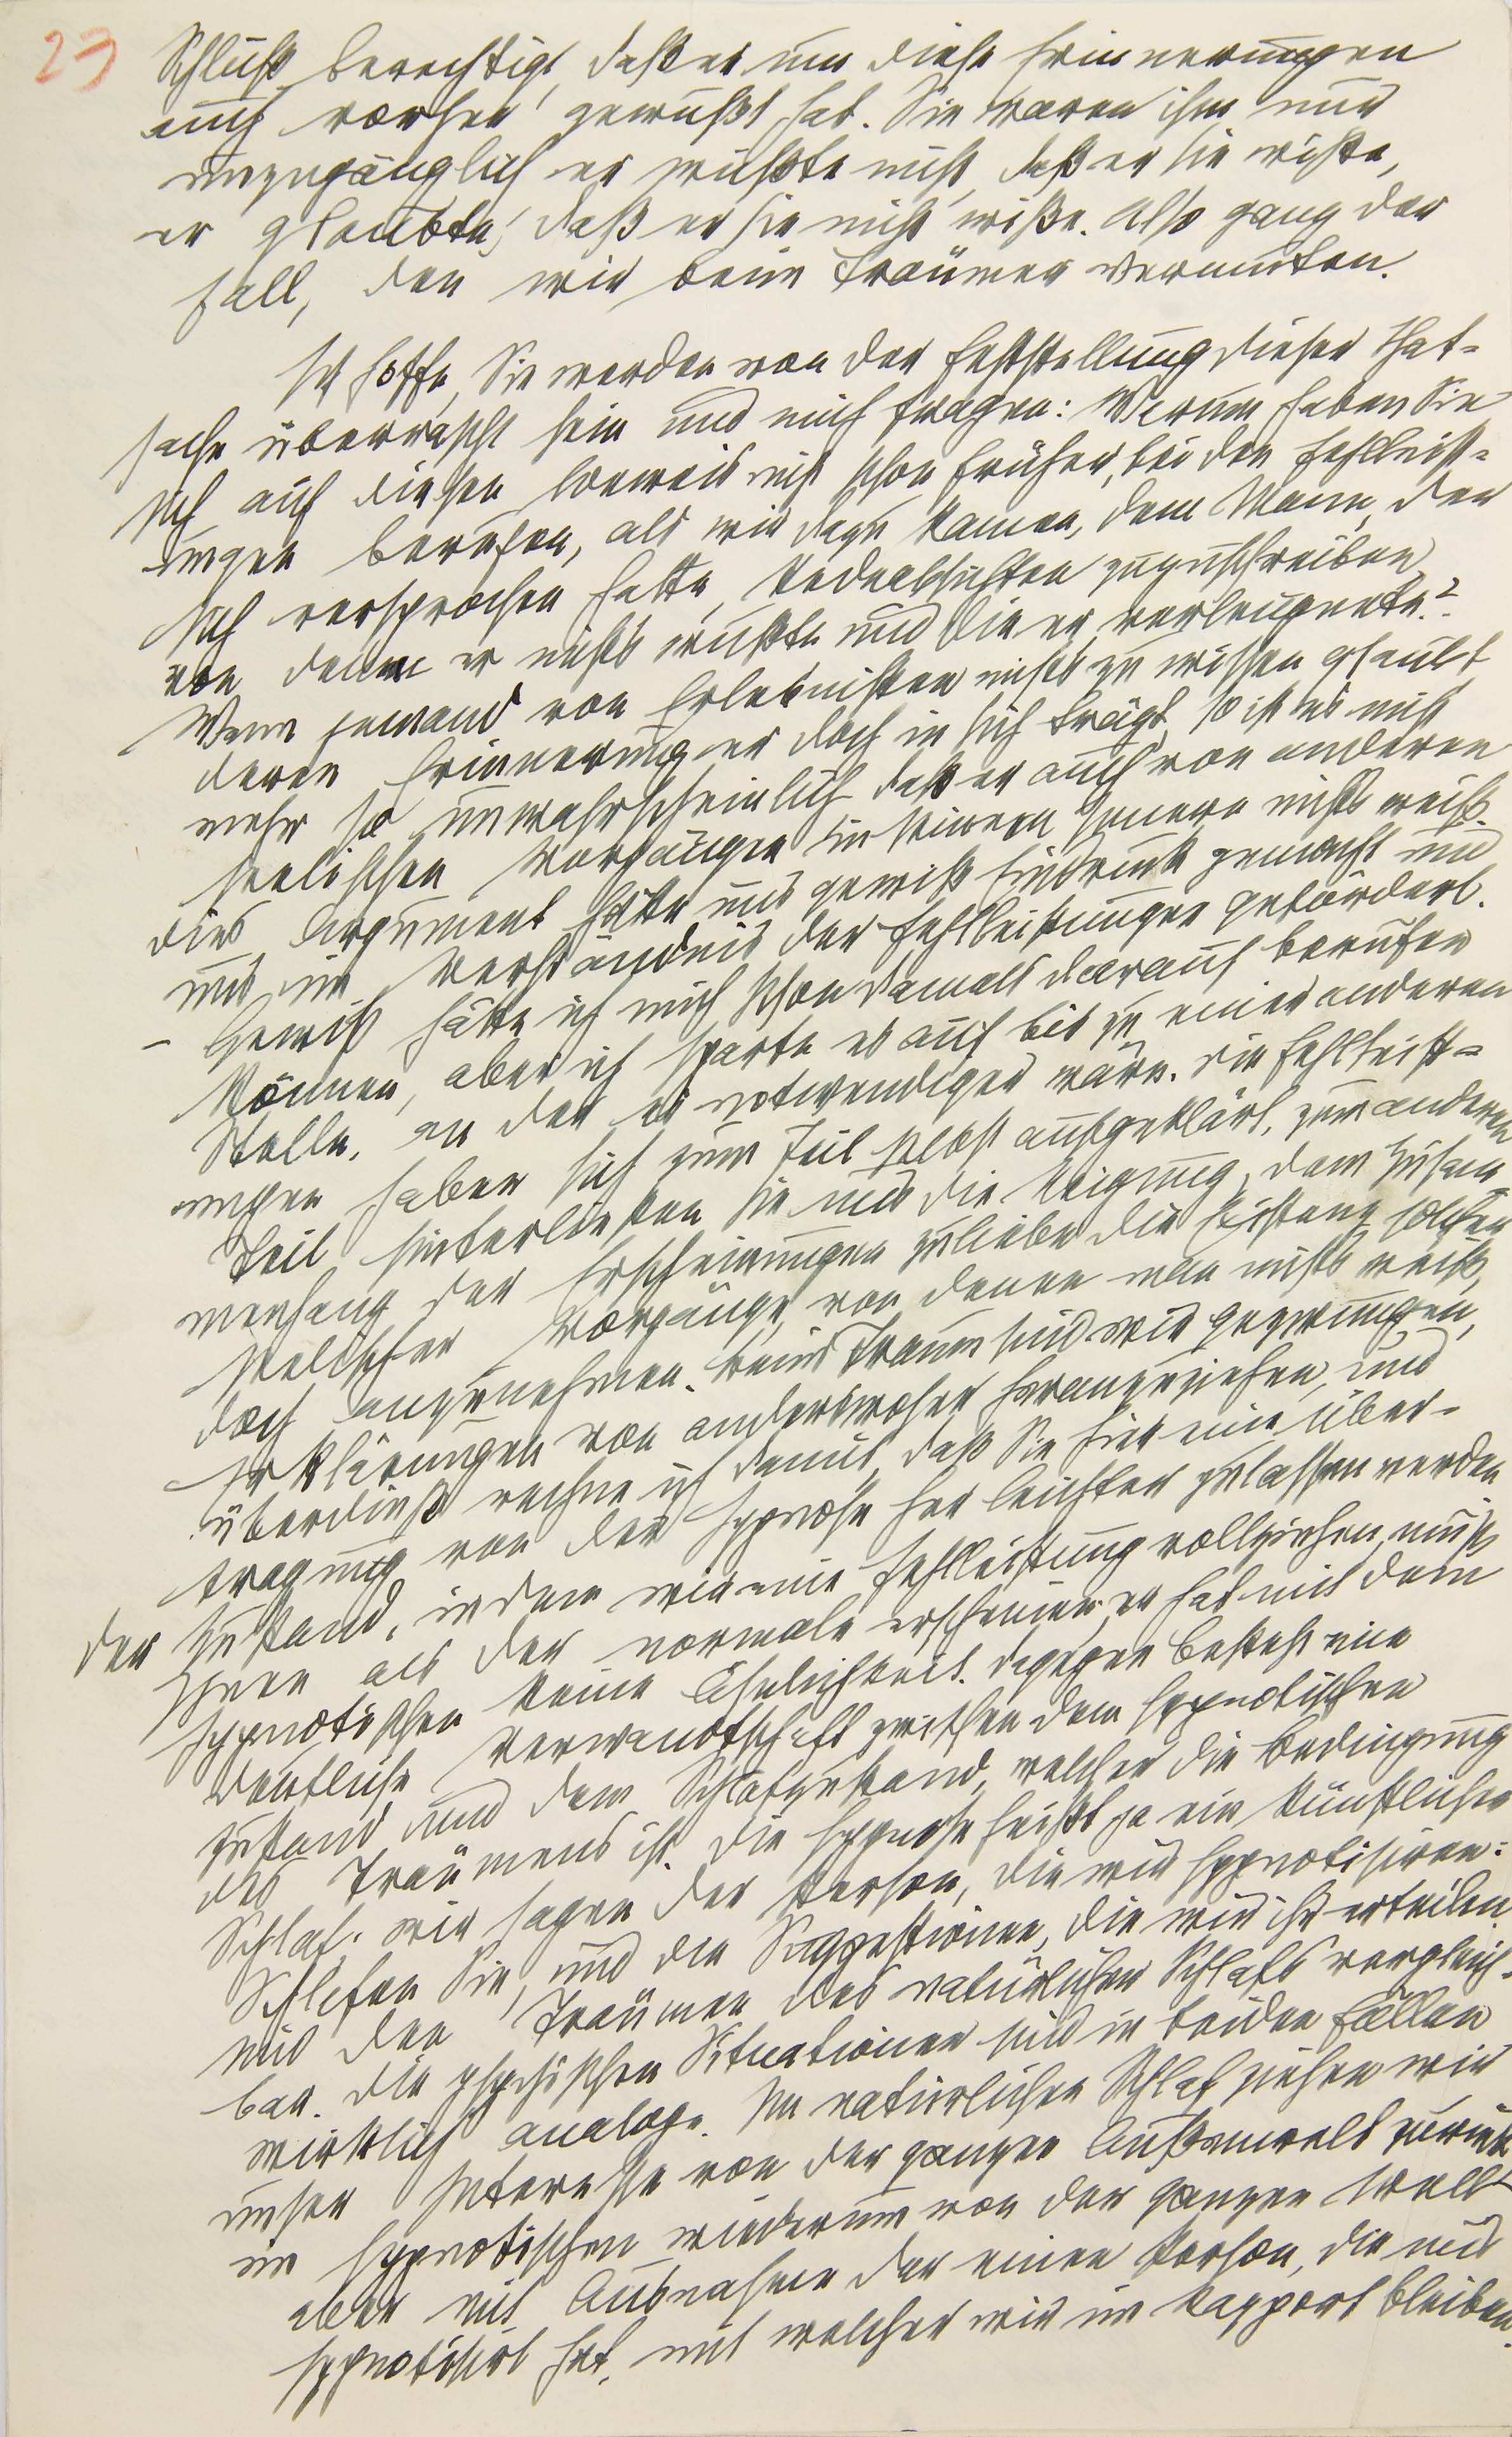 23
Schluß berechtigt, daß er um diese Erinnerungen
auch vorher gewußt hat. Sie waren ihm nur
unzugänglich er wußte nicht, daß er sie wiße,
er glaubte, daß er sie nicht wiße. Also ganz der
Fall, den wir beim Träumer vermuten.
Ich hoffe, Sie werden von der Feststellung dieser That-
sache überrascht sein und mich fragen: Warum haben Sie
sich auf diesen Beweis nicht schon früher, bei den Fehlleist-
ungen berufen, als wir dazu kamen, dem Mann, der
sich versprochen hatte, Redeabsichten zuzuschreiben,
von denen er nichts wußte und die er verleugnete?
Wenn jemand von Erlebnißen nichts zu wissen glaubt,
deren Erinnerung er doch in sich trägt, so ist es nicht
mehr so unwahrscheinlich, daß er auch von anderen
seelischen Vorgängen in seinem Innern nichts weiß.
Dies Argument hätte uns gewiß Eindruck gemacht und
uns im Verständnis der Fehlleistungen gefördert.
– Gewiß hätte ich mich schon damals darauf berufen
können, aber ich sparte es auf bis zu einer anderen
Stelle, an der es notwendiger wäre. Die Fehlleist-
ungen haben sich zum Teil selbst aufgeklärt, zum anderen
Teil hinterließen sie uns die Neigung, dem Zusam-
menhang der Erscheinungen zuliebe die Existenz solcher
seelischer Vorgänge, von denen man nichts weiß,
doch anzunehmen. Beim Traum sind wir gezwungen,
Erklärungen von anderswoher heranzuziehen, und
überdieß rechne ich damit, daß Sie hier eine Über-
tragung von der Hypnose her leichter zulassen werden
Der Zustand, in dem wir eine Fehlleistung vollziehen, muß
Ihnen als der normale erscheinen, er hat mit dem
hypnotischen keine Ähnlichkeit. Dagegen besteht eine
deutliche Verwandtschaft zwischen dem hypnotischen
Zustand und dem Schlafzustand, welcher die Bedingung
des Träumens ist. Die Hypnose heißt ja ein künstlicher
Schlaf; wir sagen der Person, die wir hypnotisiren:
Schlafen Sie, und die Suggestionen, die wir ihr erteilen,
sind den Träumen des natürlichen Schlafs vergleich-
bar. Die psychischen Situationen sind in beiden Fällen
wirklich analoge. Im natürlichen Schlaf ziehen wir
unser Interesse von der ganzen Außenwelt zurück
im hypnotischen wiederum von der ganzen Welt
aber mit Ausnahme der einen Person, die uns
hypnotisirt hat, mit welcher wir im Rapport bleiben.